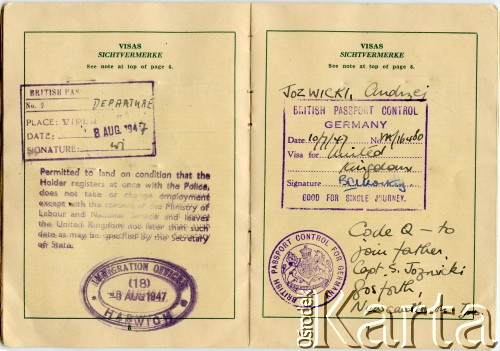 VISAS
SICHTVERMERKE
See note at top of page 6.
BRITISH PAS
No. 2 DEPARTURE
PLACE:
DATE: 8 AUG 1947
SIGNATURE:
Permitted to land on condition that the
Holder registers at once with the Police,
does not take or change employment
except with the consent of the Ministry of
Labour and National Service and leaves
the United Kingdom not later than such
date as may be specified by the Secretary
of State.
IMMIGRATION OFFICER
(18)
8 AUG 1947
HARWICH
8
VISAS
SICHTVERMERKE
See note at top of page 6.
JOZWICKI, Andrzej
BRITISH PASSPORT CONTROL
GERMANY
Date 10/7/47 No.
Visa for United
Kingdom
Signature
GOOD FOR SINGLE JOURNEY.
BRITISH PASSPORT CONTROL FOR GERMANY
Code Q - to
join father
Capt. S. Jozwicki
Gosforth
Newcastle on Tyne
Ośrodek
Karta